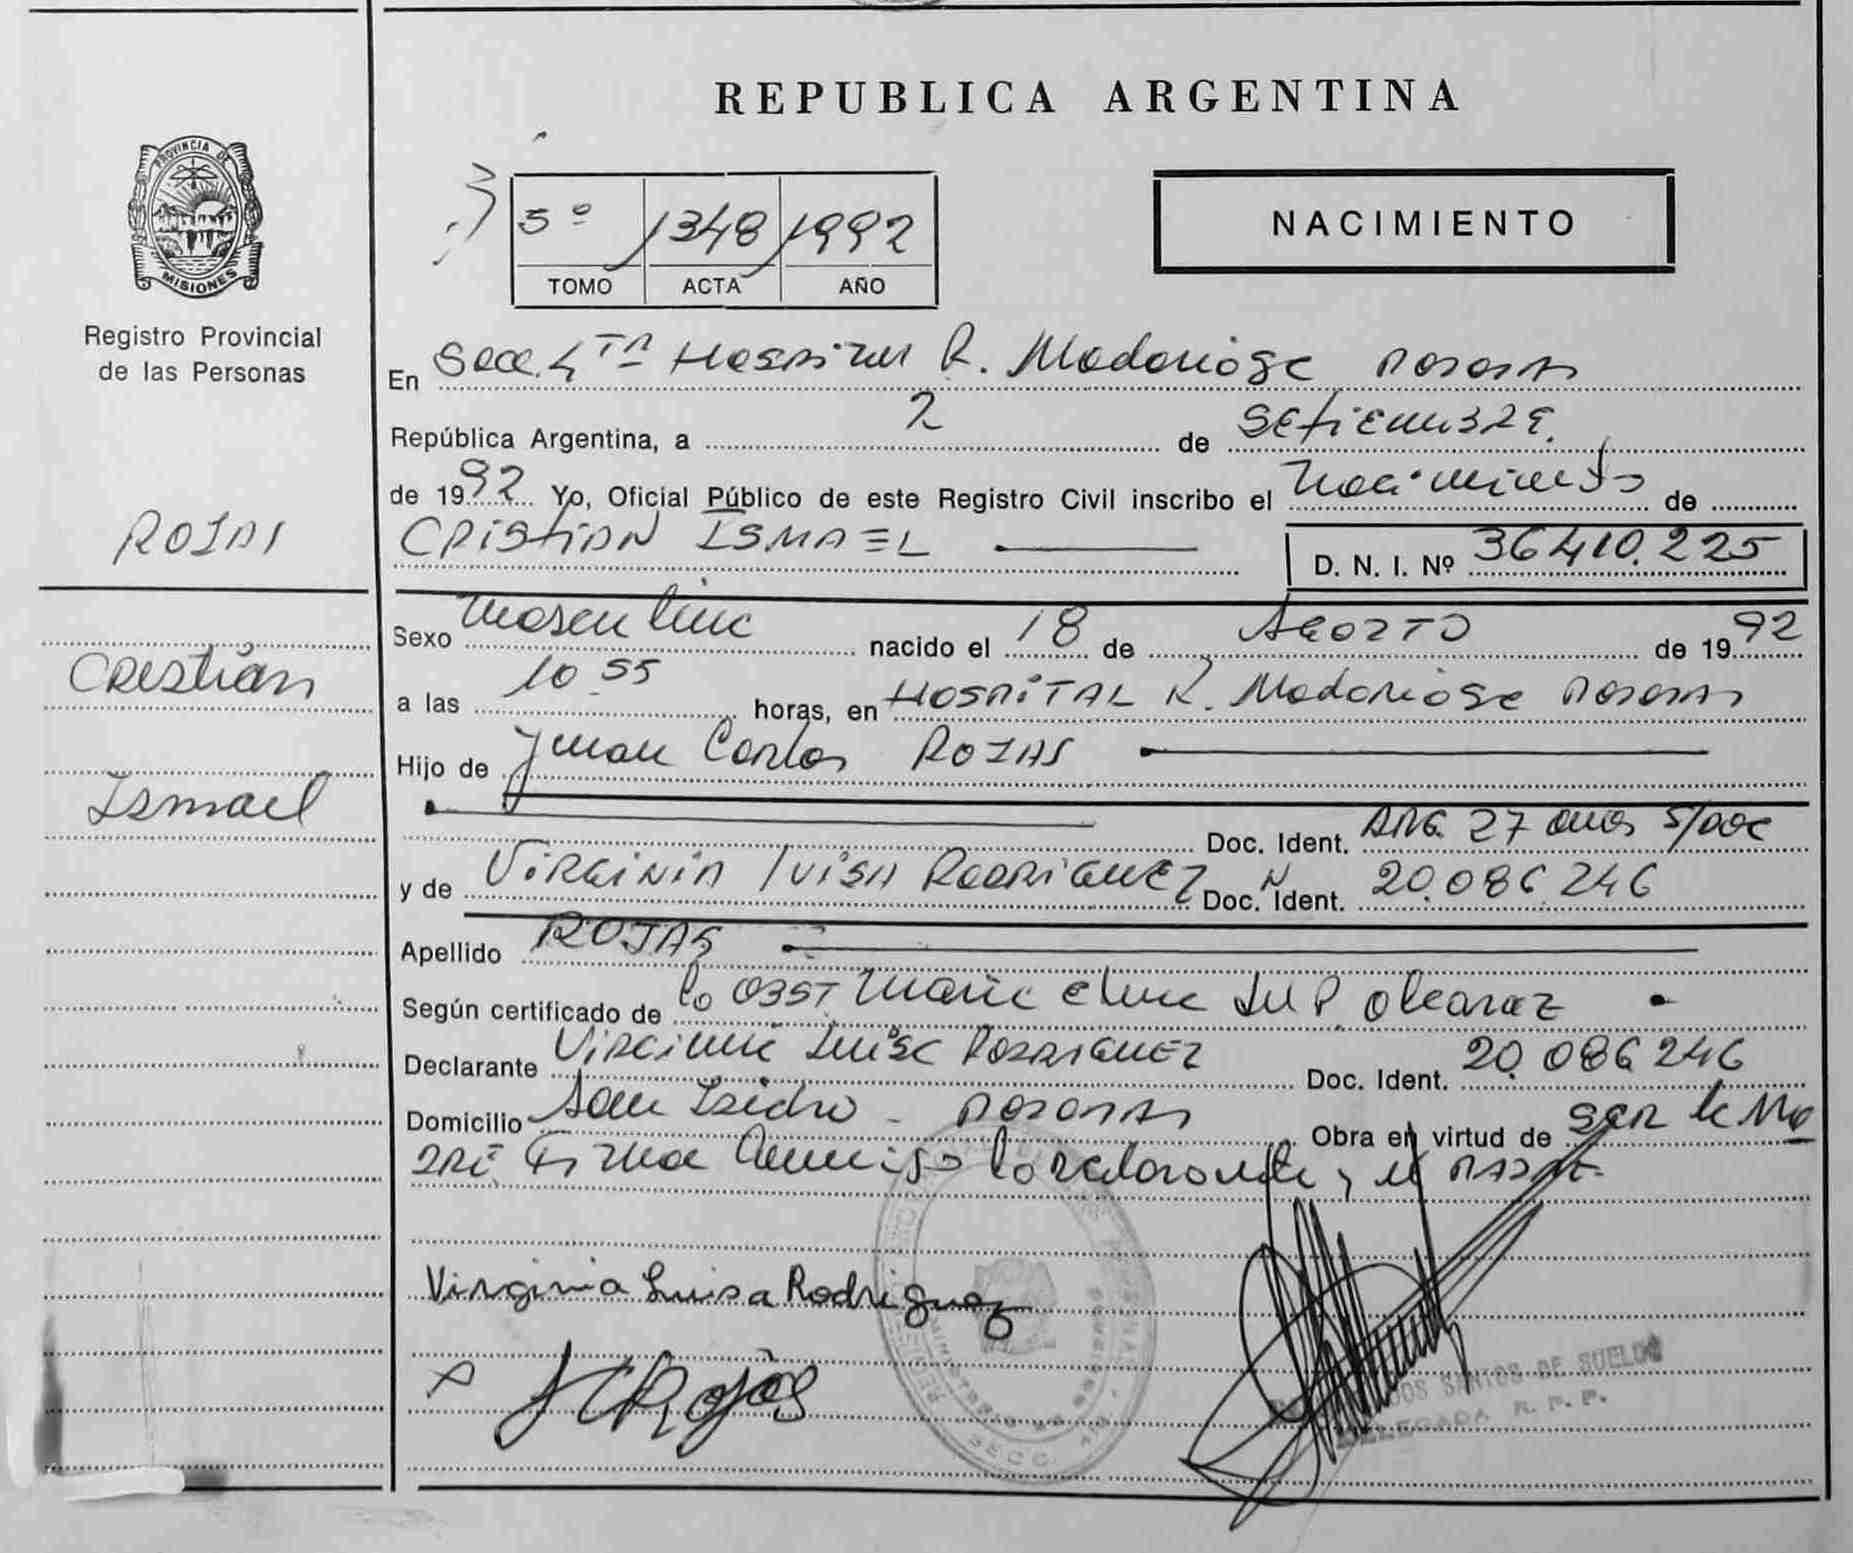 REPUBLICA ARGENTINA
PROVINCIA DE
MISIONES
Registro Provincial
de las Personas
5º 1348 1992
TOMO ACTA AÑO
NACIMIENTO
En Secc. 4TA Hospital R. Madariaga Posadas
República Argentina, a 2 de Setiembre
de 1992 Yo, Oficial Público de este Registro Civil inscribo el Nacimiento de
ROJAS
CRISTIAN ISMAEL D. N. I. Nº 36.410.225
Sexo Masculino nacido el 18 de AGOSTO de 1992
Cristian
a las 10 55 horas, en HOSPITAL R. Madariaga Posadas
Hijo de Juan Carlos ROJAS
Ismael
Doc. Ident. ARG. 27 años S/doc
y de VIRGINIA LUISA RODRIGUEZ Doc. Ident. N 20.086.246
Apellido ROJAS
Según certificado de la OBST Maria Elena
Declarante Virginia Luisa RODRIGUEZ Doc. Ident. 20.086.246
Domicilio San Isidro - Posadas Obra en virtud de ser la Ma
dre Firma Conmigo la declarante y el padre
Virginia Luisa Rodriguez
x JCRojas
SANTOS DE SUELDO
DELEGADA R. P. P.
SECC. 4ta